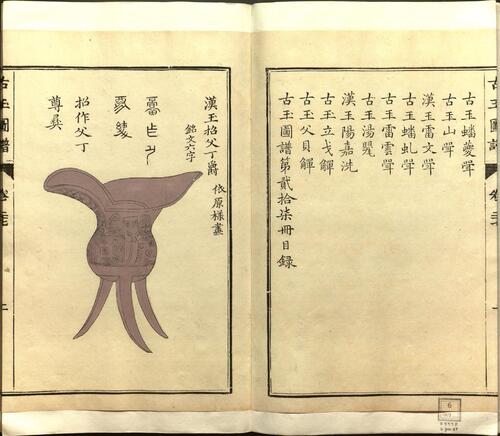 古玉圖譜
卷
古玉蟠夔斝
古玉山斝
漢玉雷文斝
古玉蟠虬斝
古玉雷雲斝
古玉湯
漢玉陽嘉洗
古玉立戈觶
古玉父貝觶
古玉圖譜第貳拾柒冊目錄
漢玉招父丁爵 依原樣畫
銘文六字
招作父丁
尊彝
古玉圖譜
卷
6